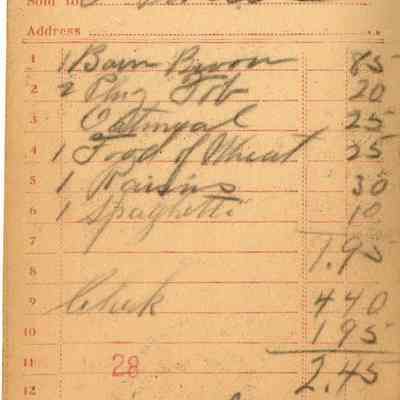 Sold to
Address
1 1 Barn Broom 85
2 2 Plug Tob 20
3 Oatmeal 25
4 1 Food of Wheat 25
5 1 Raisins 30
6 1 Spaghetti 10
7 1.95
8
9 Check 440
10 195
11 28 2.45
12